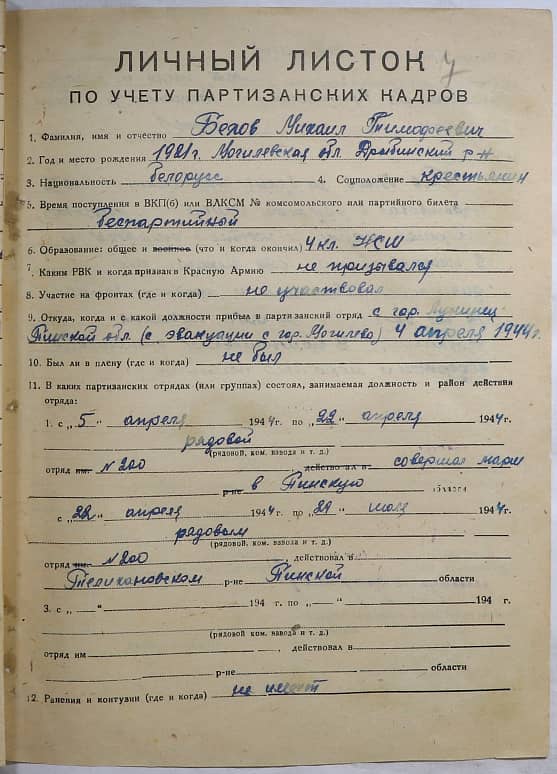 ЛИЧНЫЙ ЛИСТОК 7
ПО УЧЕТУ ПАРТИЗАНСКИХ КАДРОВ
1. Фамилия, имя и отчество Белов Михаил Тимофеевич
2. Год и место рождения 1921г. Могилевская обл. Дрибинский р-н
3. Национальность белорусс 4. Соцположение крестьянин
5. Время поступления в ВКП(б) или ВЛКСМ № комсомольского или партийного билета
беспартийный
6. Образование: общее и военное (что и когда окончил) 4 кл. НСШ
7. Каким РВК и когда призван в Красную Армию не призывался
8. Участие на фронтах (где и когда) не участвовал
9. Откуда, когда и с какой должности прибыл в партизанский отряд с гор. Лунинец
Пинской обл. (с эвакуации с гор. Могилева) 4 апреля 1944г.
10. Был ли в плену (где и когда) не был
11. В каких партизанских отрядах (или группах) состоял, занимаемая должность и район действия
отряда:
1. с „5“ апреля 1944г. по „22“ апреля 1944г.
рядовой
(рядовой, ком. взвода и т. д.)
отряд им. №200, действовал в совершал марш
р-не в Пинскую область
с „22“ апреля 1944г. по „29“ июля 1944г.
рядовым
(рядовой, ком. взвода и т. д.)
отряд им. №200, действовал в
Телехановском р-не Пинской области
3. с „ “ 194 г. по „ “ 194 г.
(рядовой, ком. взвода и т. д.)
отряд им , действовал в
р-не области
12. Ранения и контузии (где и когда) не имеет